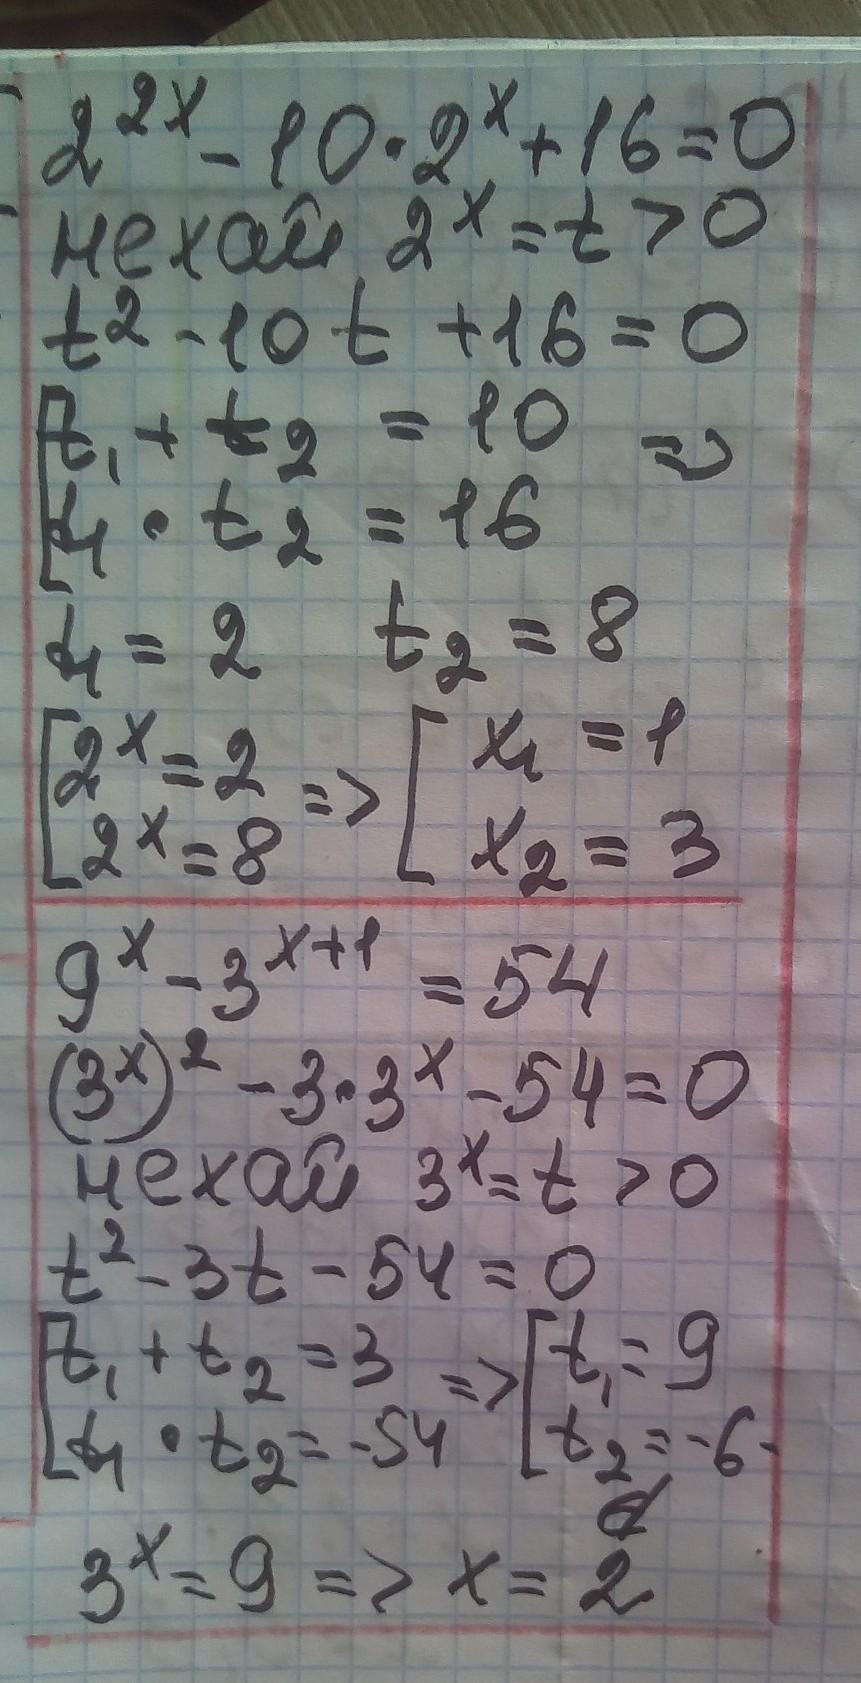 2^{2x} - 10 · 2^x + 16 = 0
нехай 2^x = t > 0
t² - 10t + 16 = 0
[ t₁ + t₂ = 10 =>
t₁ · t₂ = 16
t₁ = 2 t₂ = 8
[ 2^x = 2 => [ x₁ = 1
2^x = 8 x₂ = 3
9^x - 3^{x+1} = 54
(3^x)² - 3 · 3^x - 54 = 0
нехай 3^x = t > 0
t² - 3t - 54 = 0
[ t₁ + t₂ = 3 => [ t₁ = 9
t₁ · t₂ = -54 t₂ = -6 -
3^x = 9 => x = 2